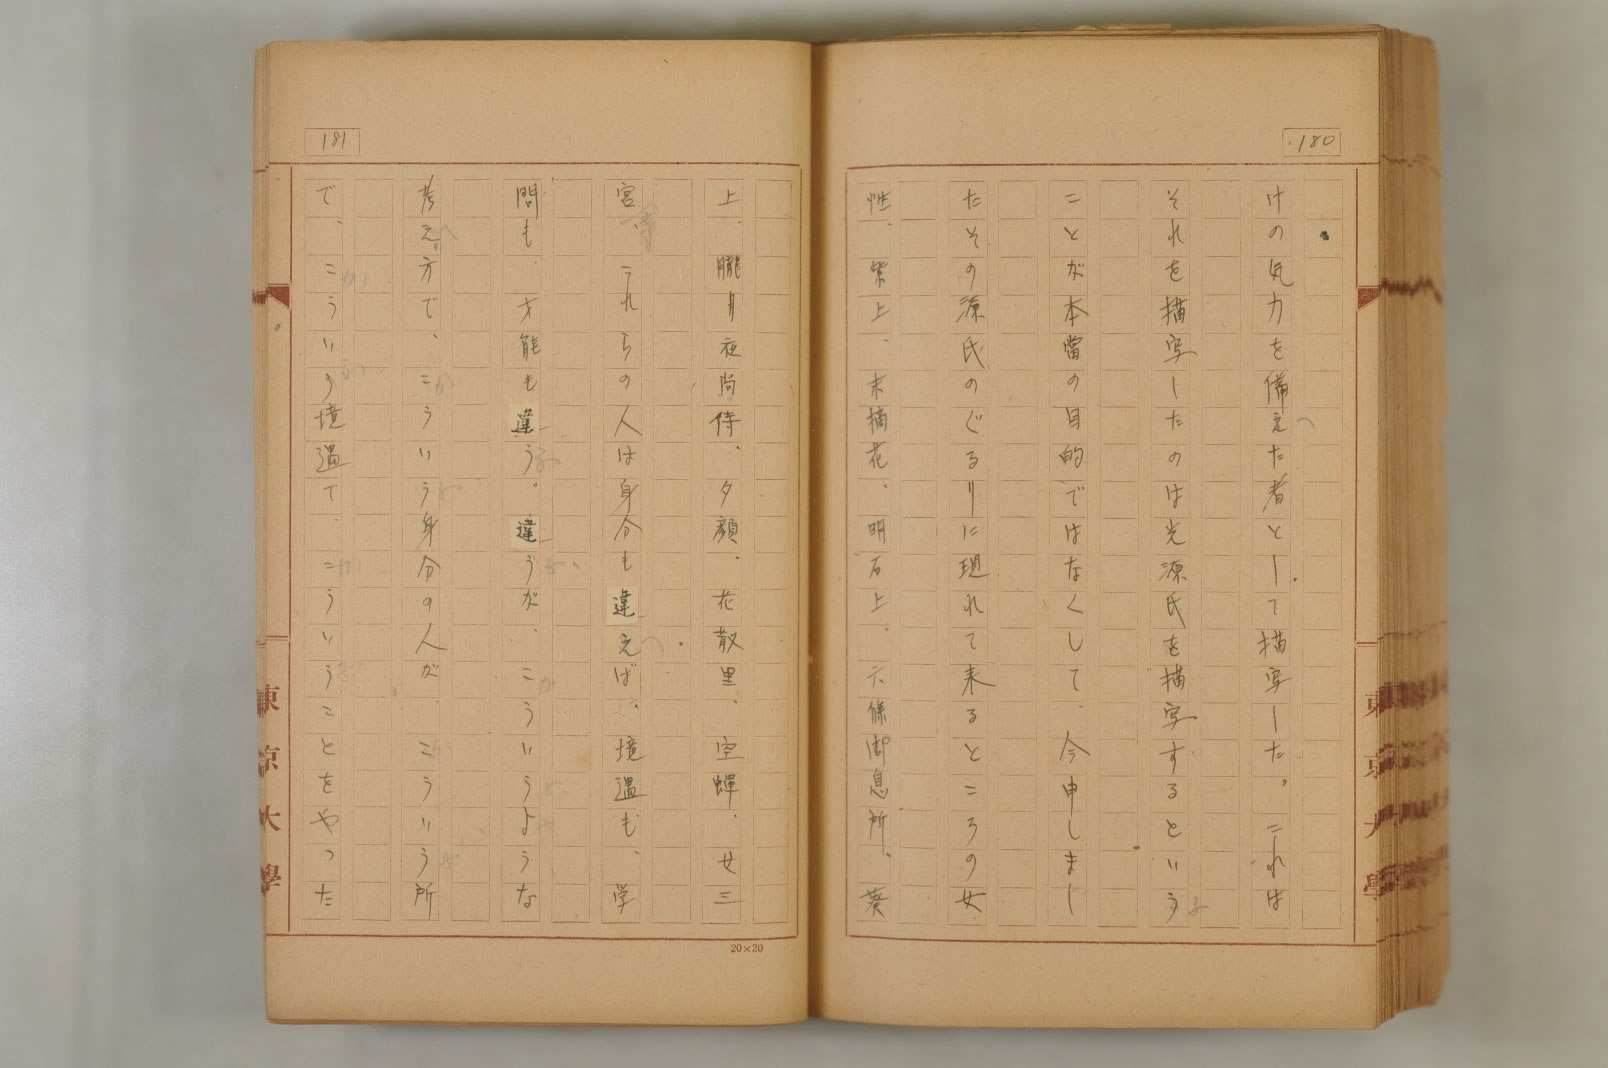 180
けの気力を備えた者として描写した。これは
それを描写したのは光源氏を描写するという
ことが本當の目的ではなくして、今申しまし
たその源氏のぐるりに現れて来るところの女
性、紫上、末摘花、明石上、六條御息所、葵
東京大學
181
上、朧月夜尚侍、夕顔、花散里、空蝉、女三
宮、これらの人は身分も違えば、境遇も、学
問も、才能も違う。違うが、こういうような
考え方で、こういう身分の人が、こういう所
で、こういう境遇で、こういうことをやった
20×20
東京大學